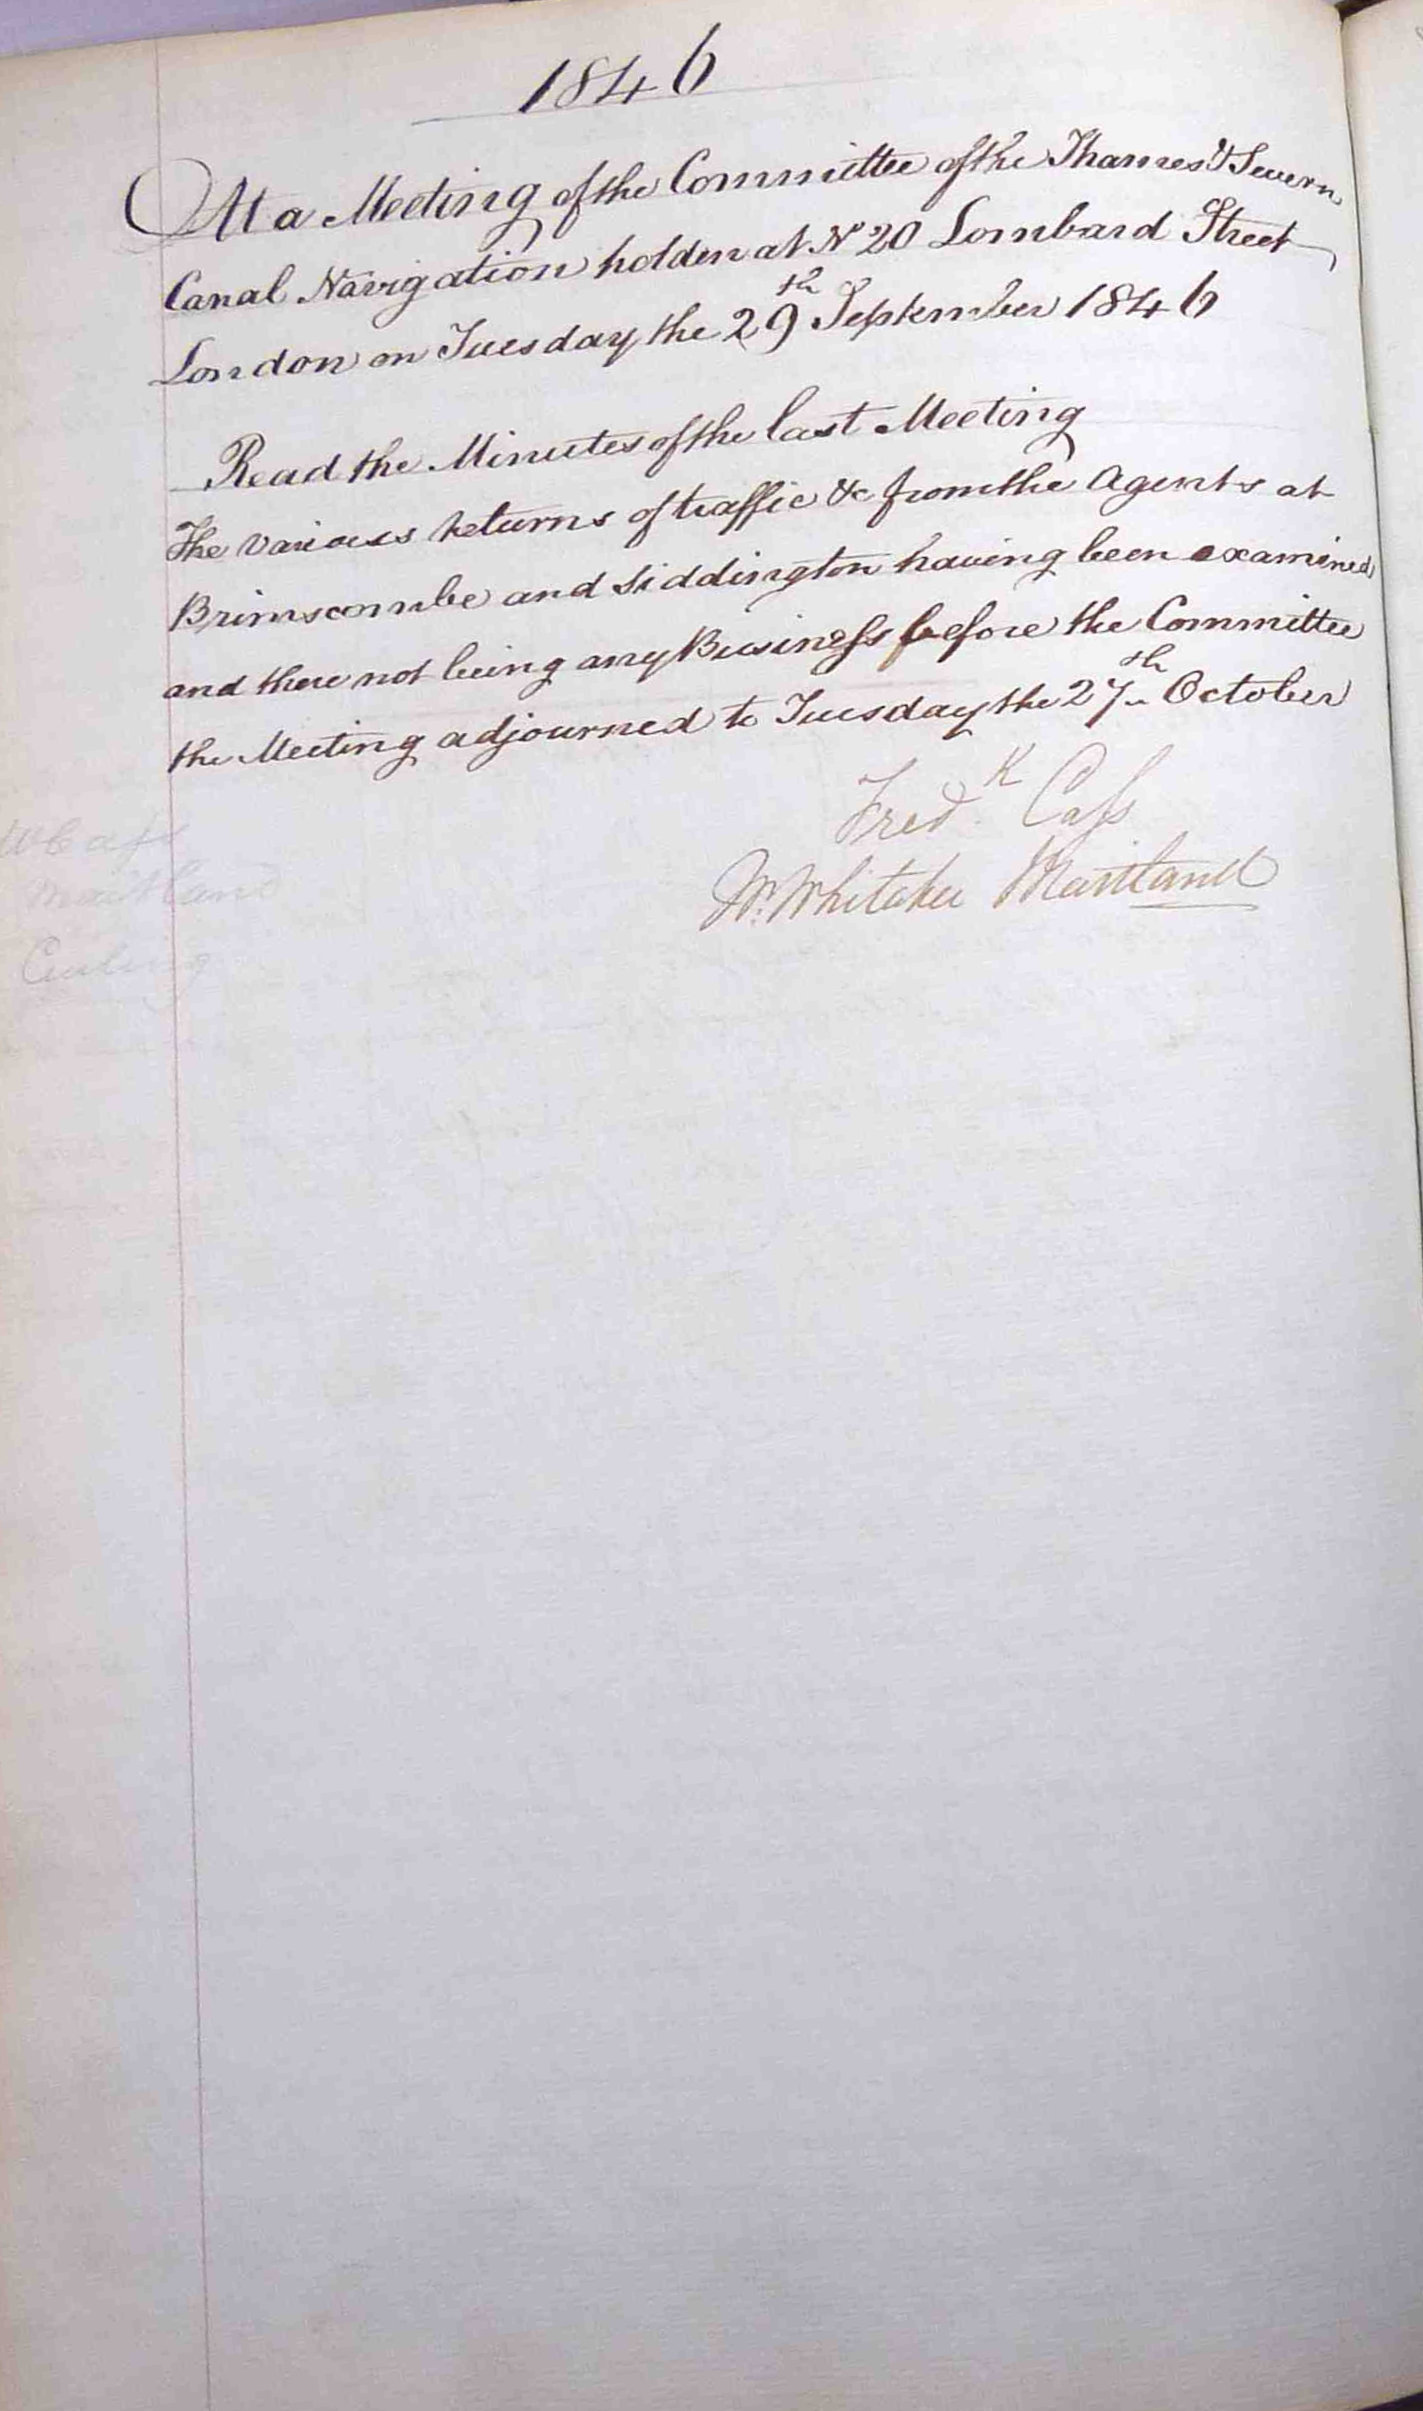 1846
At a Meeting of the Committee of the Thames & Severn
Canal Navigation holden at No 20 Lombard Street
London on Tuesday the 29th September 1846
Read the Minutes of the last Meeting
The various returns of traffic &c from the Agents at
Brimscombe and Siddington having been examined
and there not being any Business before the Committee
the Meeting adjourned to Tuesday the 27th October
Fredk Cass
Wm Whitaker Maitland
W Cass
Maitland
Culing